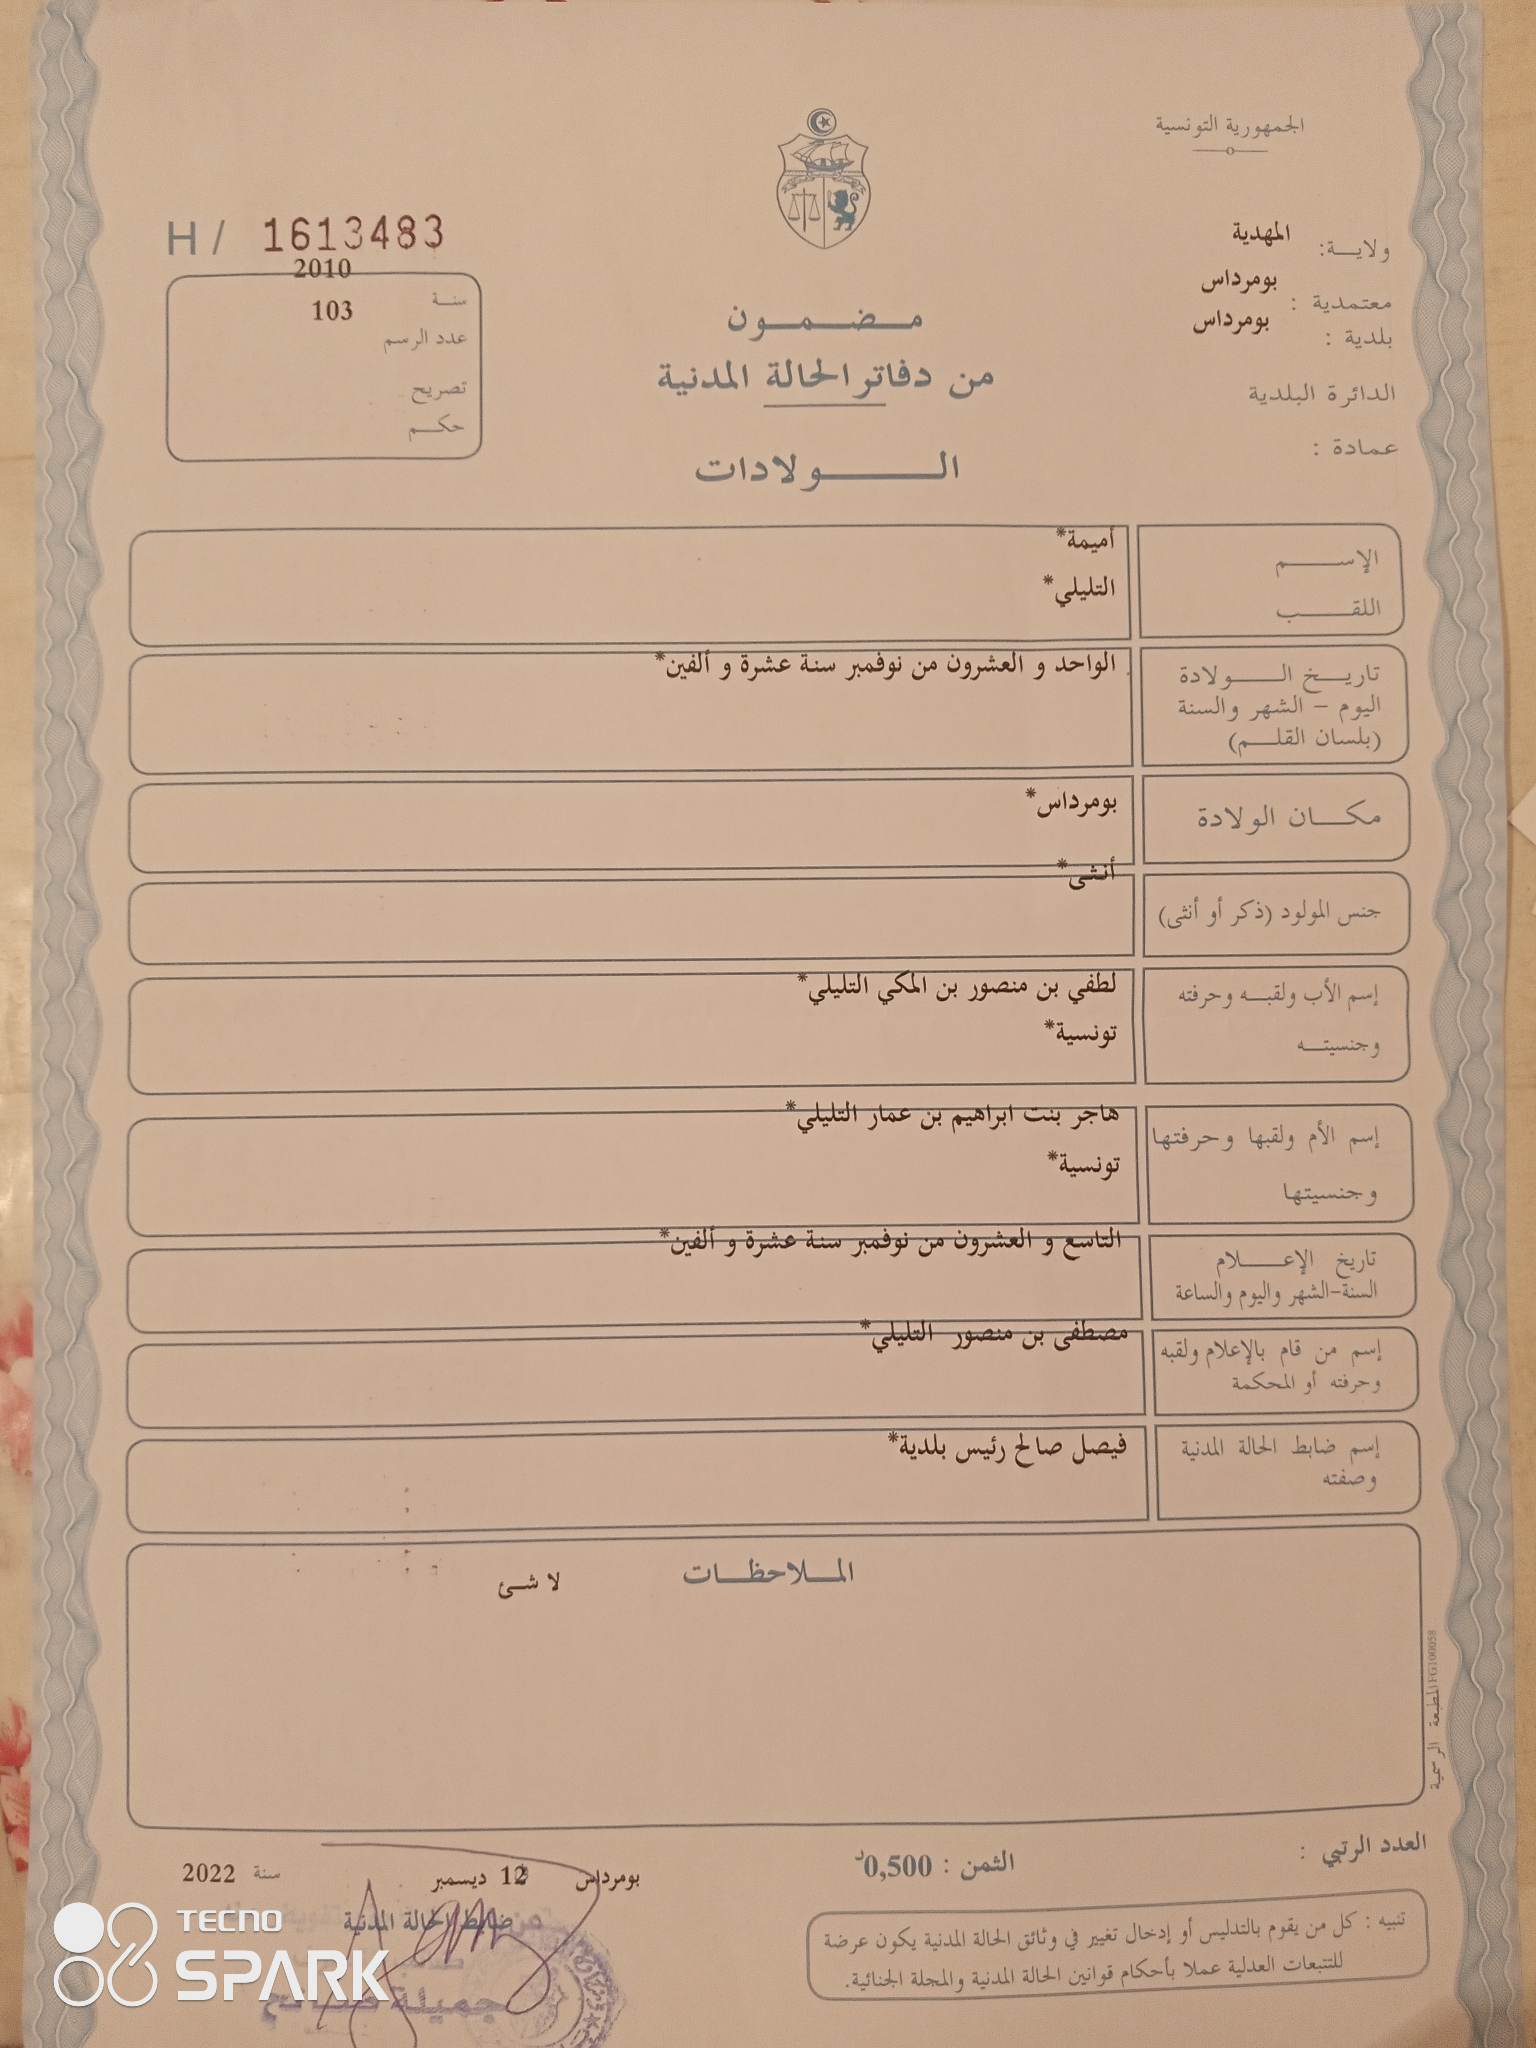 الجمهورية التونسية
ولايـــة: المهدية
معتمدية : بومرداس
بلدية : بومرداس
الدائرة البلدية
عمادة :
H / 1613483
سنـــة 2010
عدد الرسم 103
تصريح
حكـــم
مـــضـــمـــون
من دفاتر الحالة المدنية
الـــــــولادات
الإســـــم أميمة*
اللقـــــب التليلي*
تاريـــخ الـــــولادة
اليوم - الشهر والسنة
(بلسان القلـــم)
الواحد و العشرون من نوفمبر سنة عشرة و ألفين*
مكـــان الولادة بومرداس*
جنس المولود (ذكر أو أنثى) أنثى*
إسم الأب ولقبـــه وحرفته لطفي بن منصور بن المكي التليلي*
وجنسيتـــه تونسية*
إسم الأم ولقبها وحرفتها هاجر بنت ابراهيم بن عمار التليلي*
وجنسيتها تونسية*
تاريخ الإعـــــلام
السنة-الشهر واليوم والساعة
التاسع و العشرون من نوفمبر سنة عشرة و ألفين*
إسم من قام بالإعلام ولقبه
وحرفته أو المحكمة
مصطفى بن منصور التليلي*
إسم ضابط الحالة المدنية
وصفته
فيصل صالح رئيس بلدية*
المـــلاحظـــات
لا شئ
المطبعة الرسمية FG100058
العدد الرتبي :
الثمن : 0,500د
بومرداس 12 ديسمبر سنة 2022
ضابط الحالة المدنية
تنبيه : كل من يقوم بالتدليس أو إدخال تغيير في وثائق الحالة المدنية يكون عرضة
للتتبعات العدلية عملا بأحكام قوانين الحالة المدنية والمجلة الجنائية.
جميلة
TECNO
SPARK